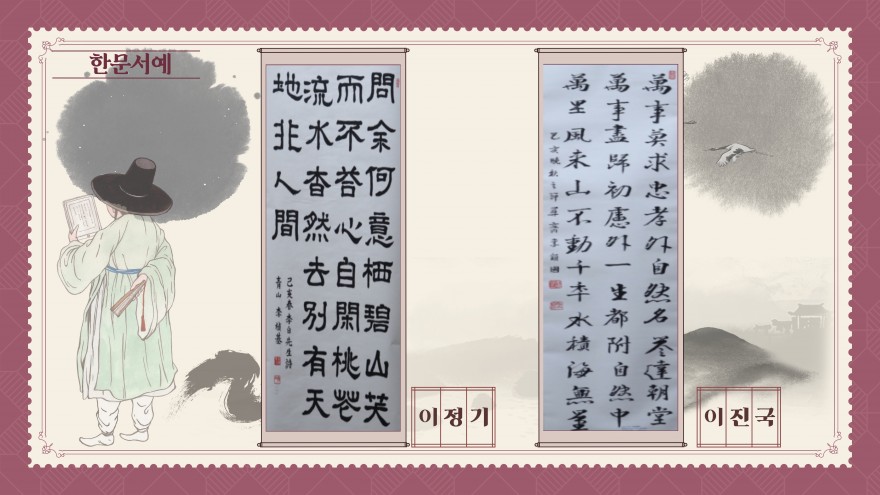 한문서예
問余何意栖碧山笑
而不荅心自閑桃花
流水杳然去別有天
地非人間
己亥春 李白先生詩
青山 李
이정기
萬事莫求忠孝外自然名達朝堂
萬事盡歸初慮外一生都附自然中
萬里風来山不動千年水積海無量
己亥晚秋之節 李鎭國
이진국